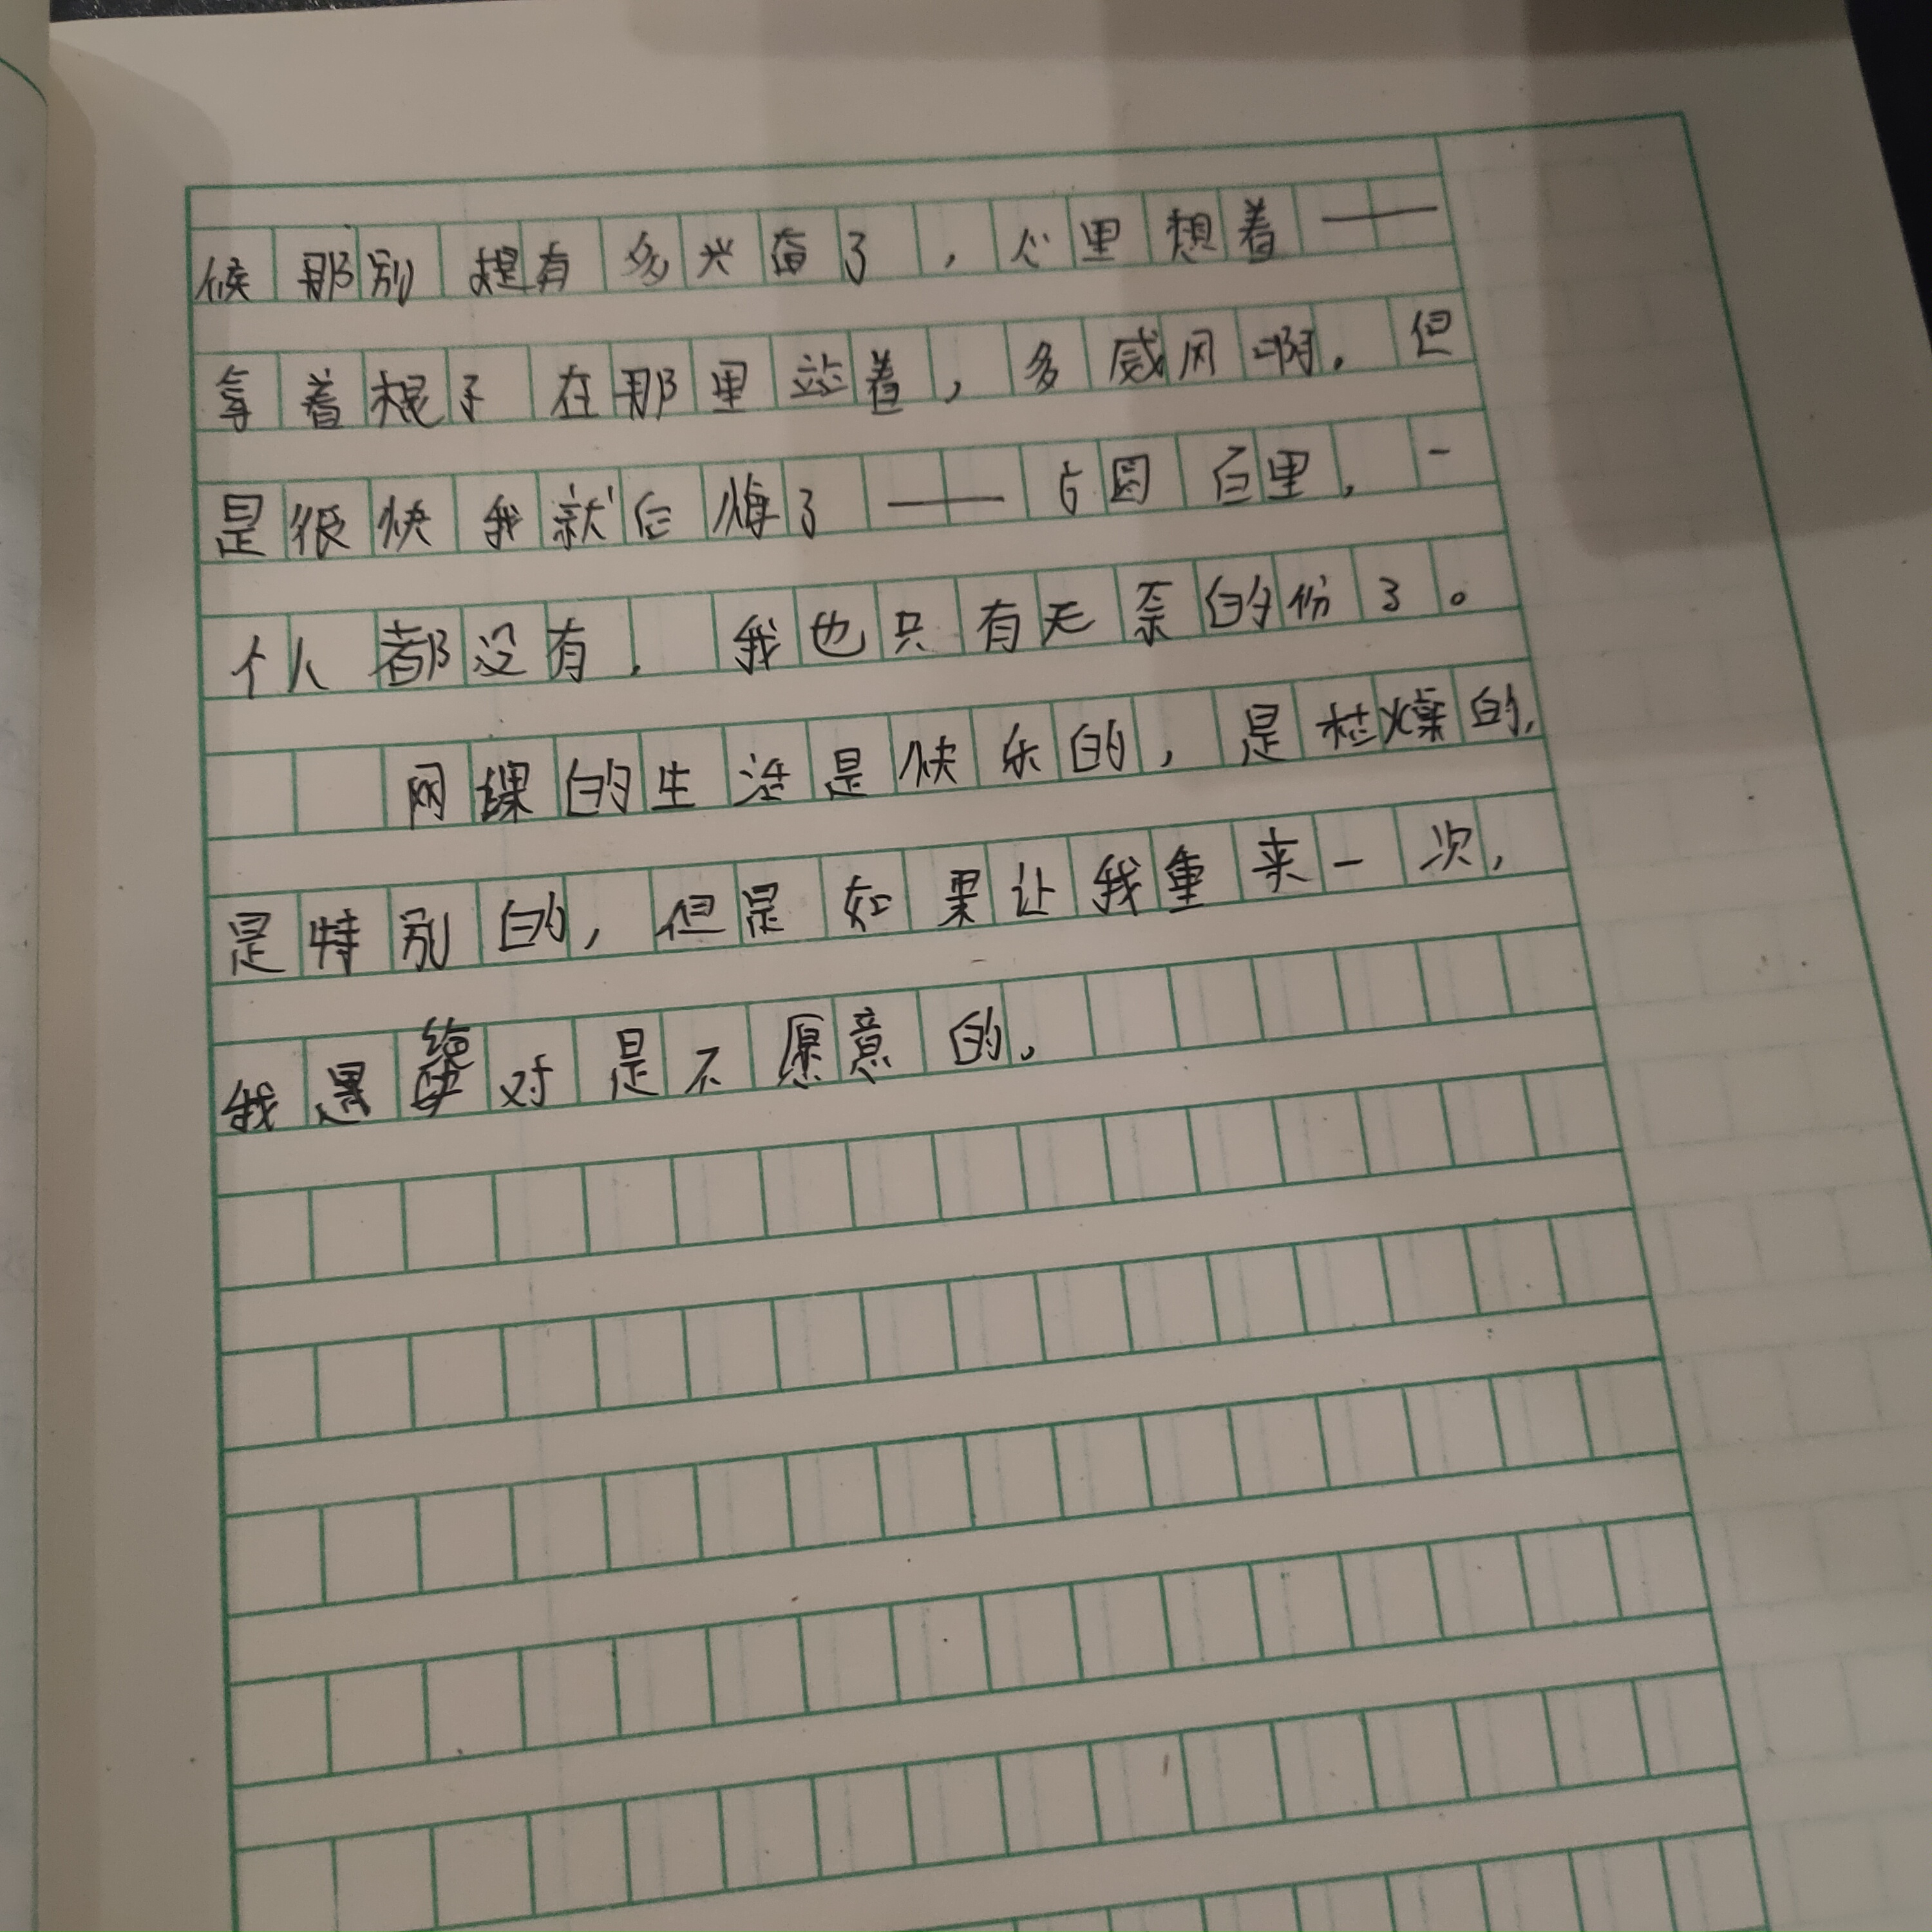 候那别提有多兴奋了，心里想着——
拿着棍子在那里站着，多威风啊。但
是很快我就后悔了——方圆百里，一
个人都没有，我也只有无奈的份了。
网课的生活是快乐的，是枯燥的，
是特别的，但是如果让我重来一次，
我是绝对是不愿意的。